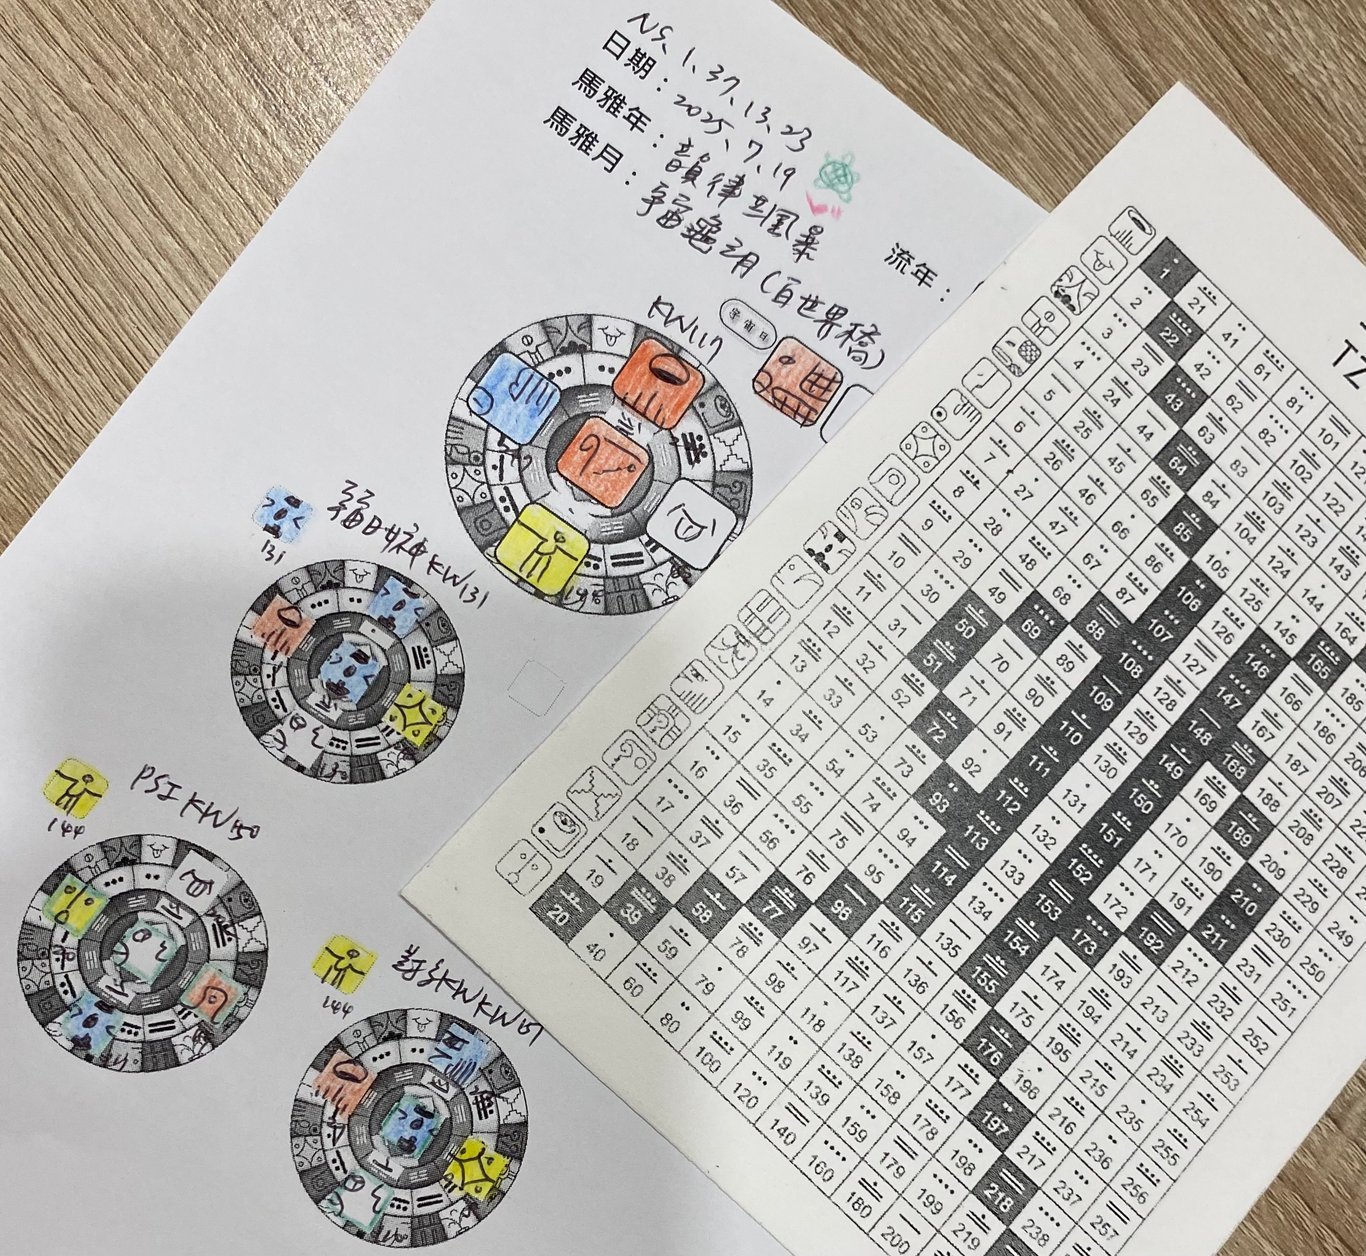 NS、1、37、13、23
日期：2025、7、19
馬雅年：韻律 風暴
馬雅月：宇宙龜之月（百世界橋）
流年：
KW117
宇宙日
女神KW131
131
PSI KW150
144
KW
144
TZ
1 21 41 61 81 101
2 22 42 62 82 102 122
3 23 43 63 83 103 123 143
4 24 44 64 84 104 124 144 164
5 25 45 65 85 105 125 145 165 185
6 26 46 66 86 106 126 146 166 186
7 27 47 67 87 107 127 147 167 187 207
8 28 48 68 88 108 128 148 168 188 208 228
9 29 49 69 89 109 129 149 169 189 209 229 249
10 30 50 70 90 110 130 150 170 190 210 230 250
11 31 51 71 91 111 131 151 171 191 211 231 251
12 32 52 72 92 112 132 152 172 192 212 232 252
13 33 53 73 93 113 133 153 173 193 213 233 253
14 34 54 74 94 114 134 154 174 194 214 234 254
15 35 55 75 95 115 135 155 175 195 215 235 255
16 36 56 76 96 116 136 156 176 196 216 236 256
17 37 57 77 97 117 137 157 177 197 217 237 257
18 38 58 78 98 118 138 158 178 198 218 238
19 39 59 79 99 119 139 159 179 199 219
20 40 60 80 100 120 140 160 180 200